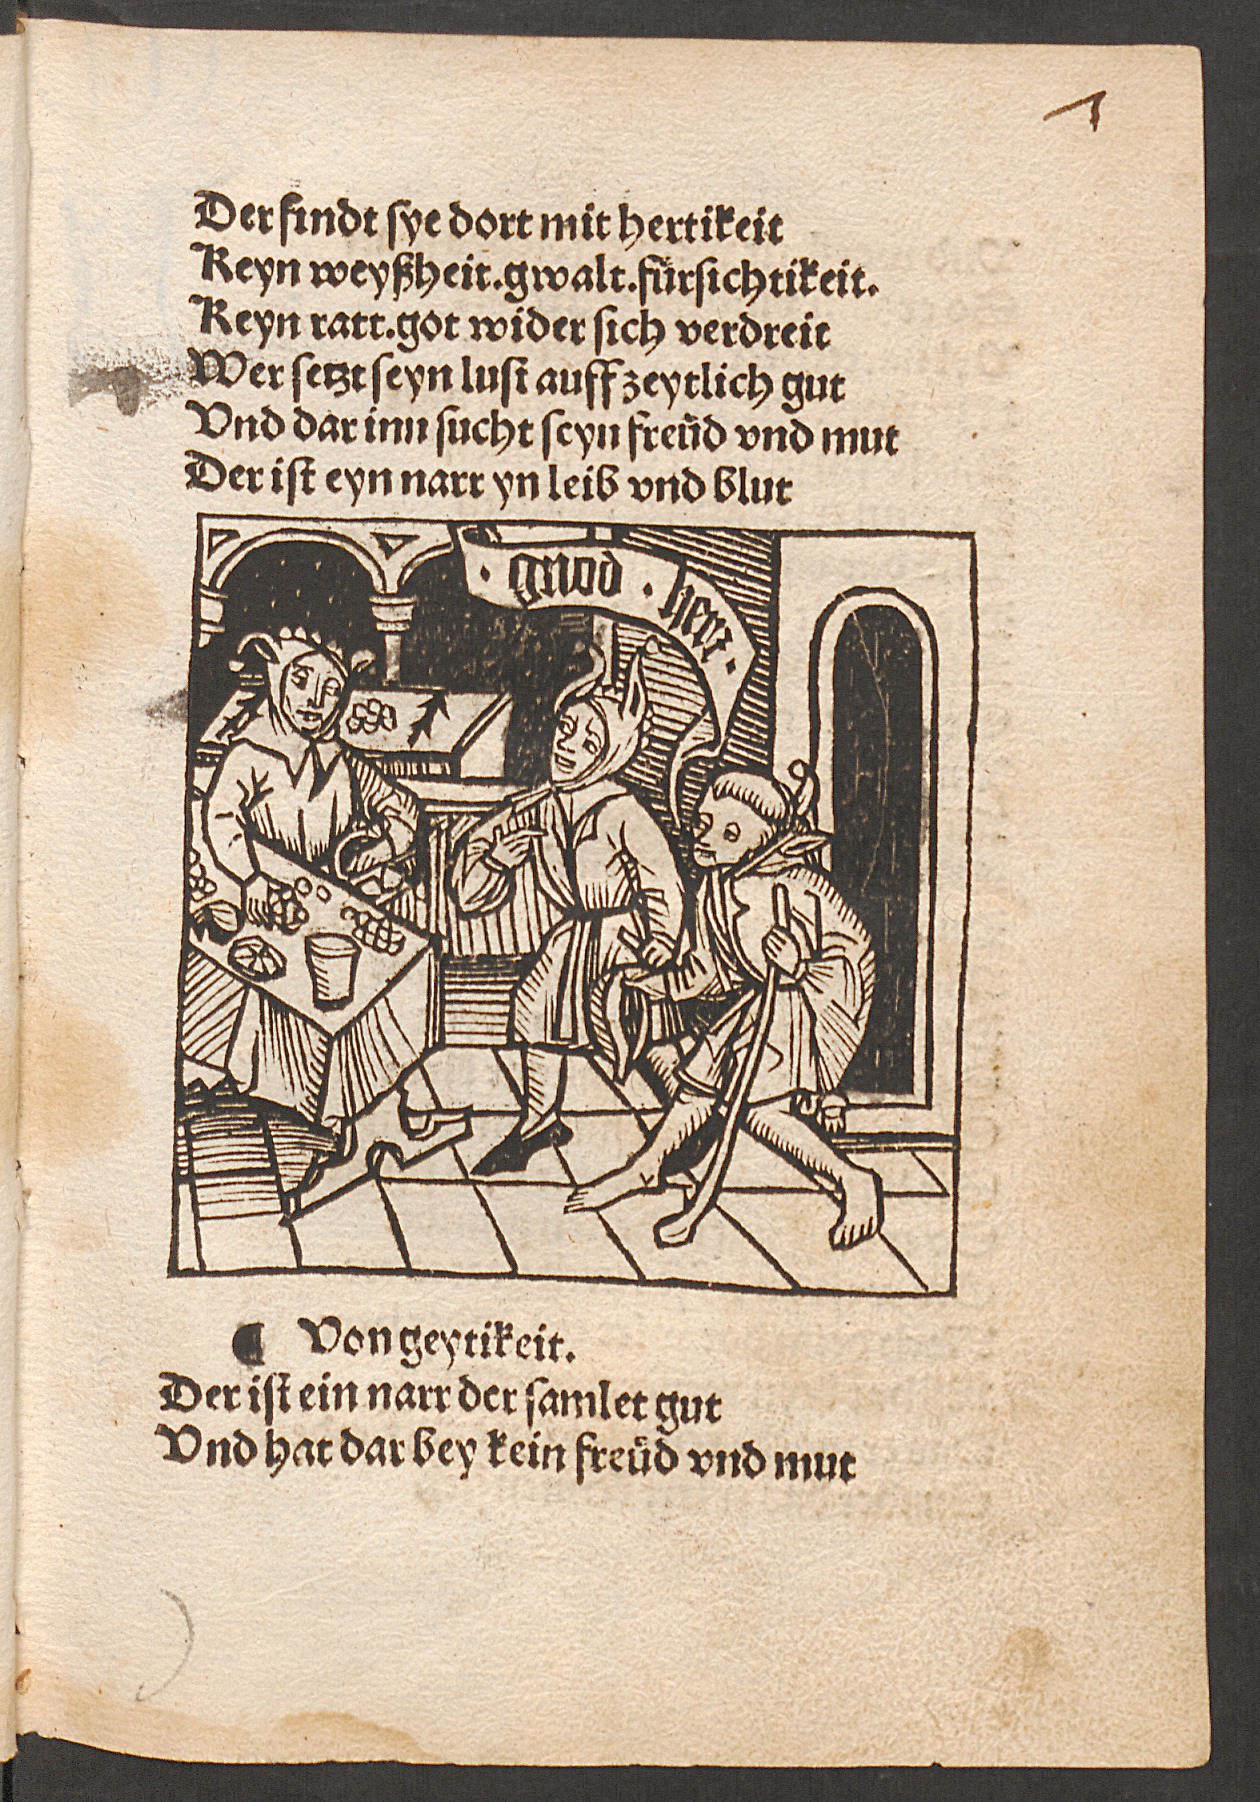 1
Der findt sye dort mit hertikeit
Keyn weyßheit.gwalt.fürsichtikeit.
Keyn ratt.got wider sich verdreit
Wer setzt seyn lust auff zeytlich gut
Vnd dar inn sucht seyn freüd vnd mut
Der ist eyn narr yn leib vnd blut
. gnod . herr .
¶ Von geytikeit.
Der ist ein narr der samlet gut
Vnd hat dar bey kein freüd vnd mut